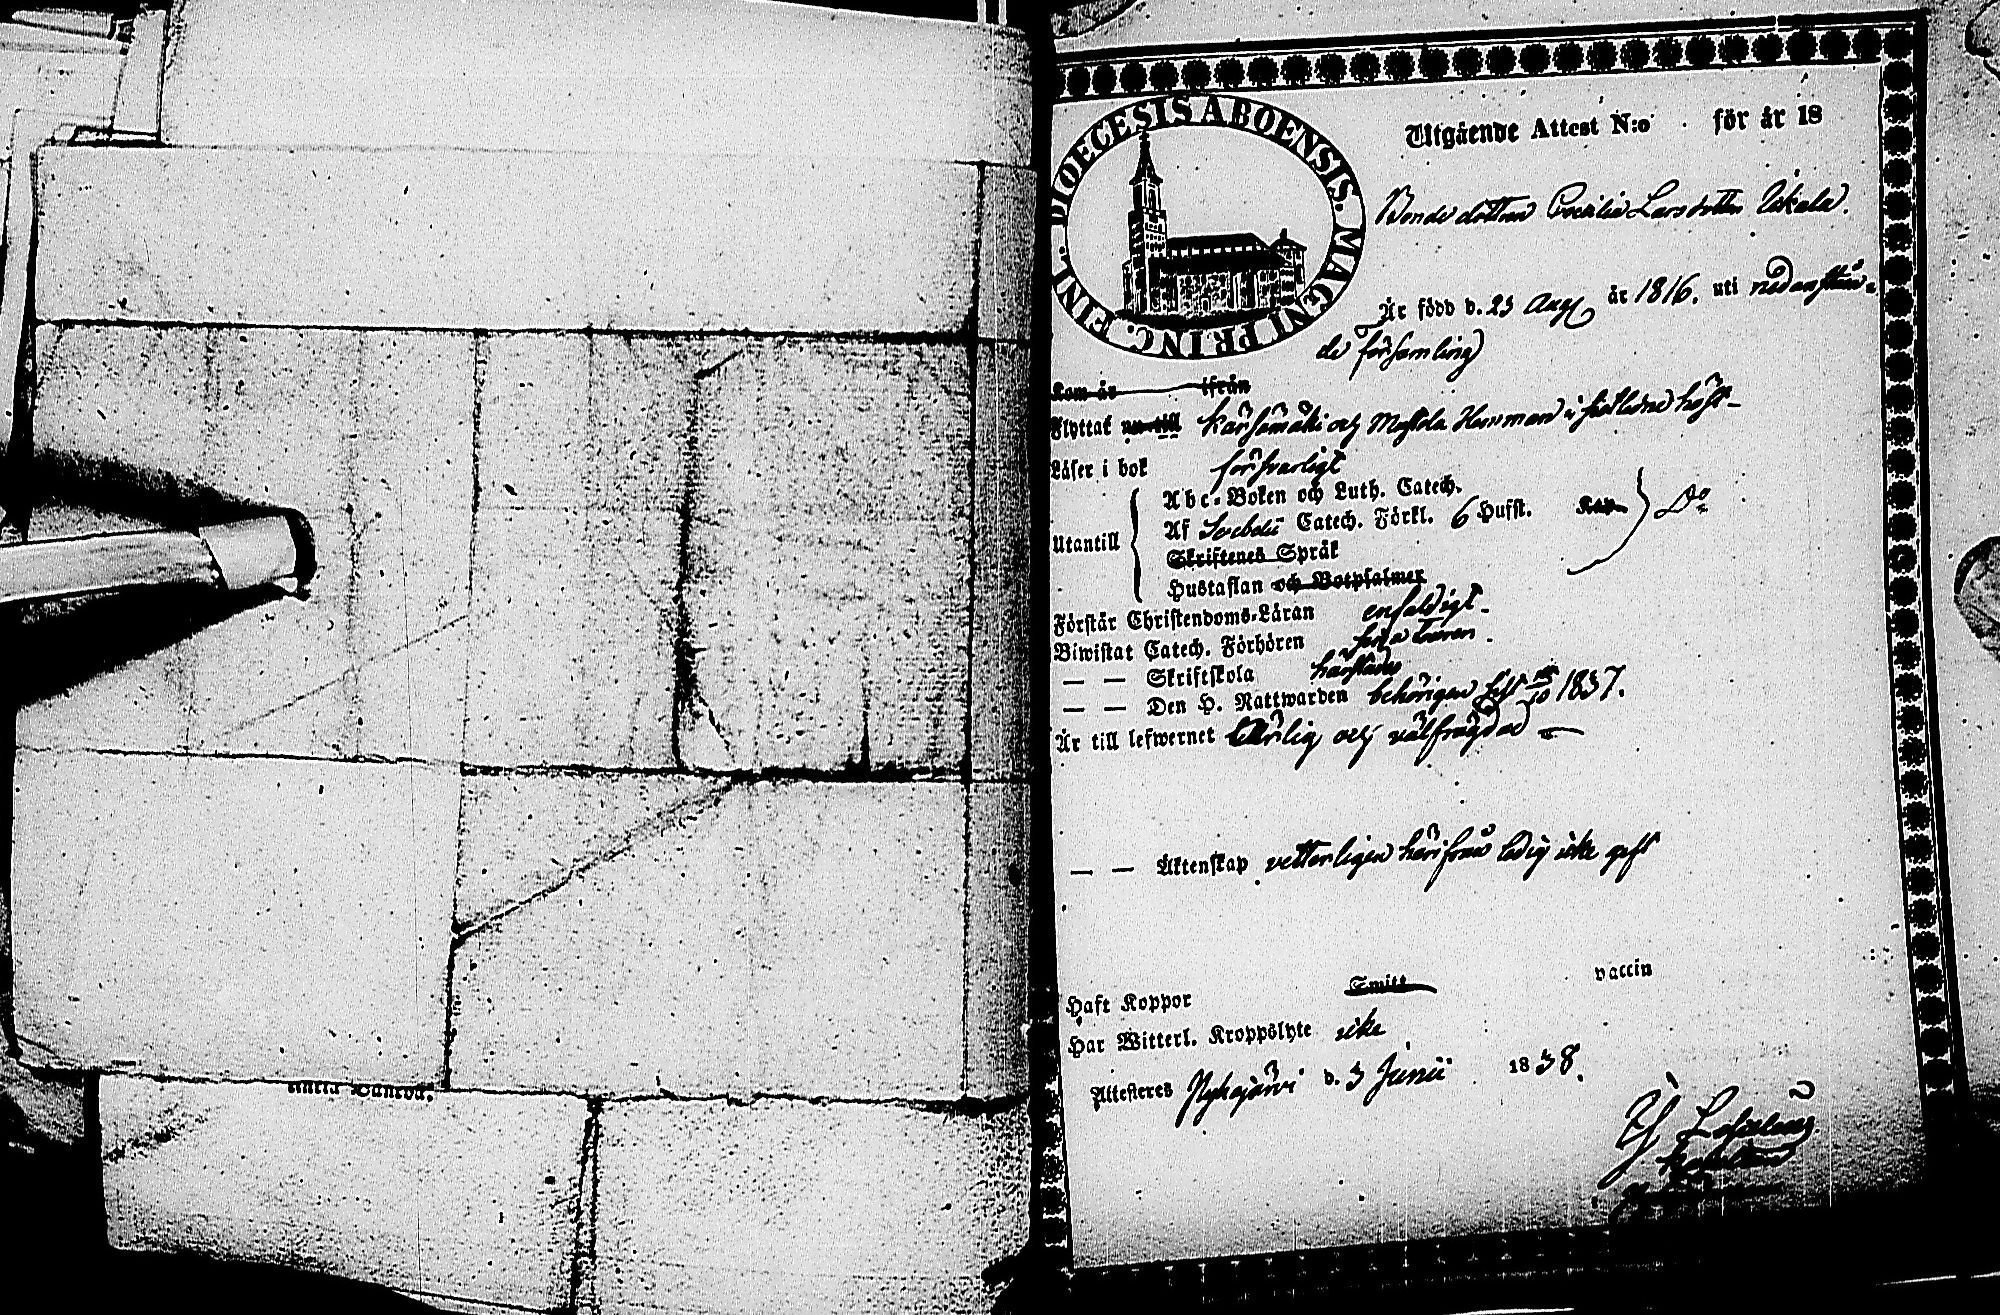 DIOECESIS ABOENSIS. MAGNI PRINC. FINL.
Utgående Attest N:o . för år 18
Bonde dottren Cecilia Larsdotter Uskala.
Är född d. 23 Aug år 1816. uti nedanståen-
de församling
Kom år ifrån
Flyttat nu till Kärsämäki och Masku i sistledne höst-
Läser i bok försvarligt
Utantill
Abc-Boken och Luth. Catech.
Af Svebelii Catech. Förkl. 6 Hufst. Kap. Do
Skriftenes Språk
Hustaflan och Botpsalmer
Förstår Christendoms-Läran enfaldigt.
Biwistat Catech. Förhören
— — Skriftskola härstädes
— — Den H. Nattwarden behörigen sist 10 1837.
Är till lefwernet ärlig och välfrägdad
— — Äktenskap vetterligen härifrån ledig icke gift
Haft Koppor Smitt vaccin
Har Witterl. Kroppslyte icke
Attesteras Pyhäjärvi d. 3 Junii 1838.